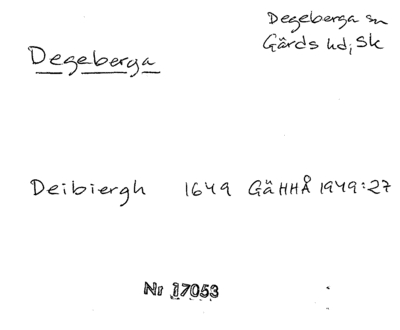 Degeberga sn
Gärds hd, Sk
Degeberga
Deibiergh 1649 GäHHÅ 1949:27
Nr 17053